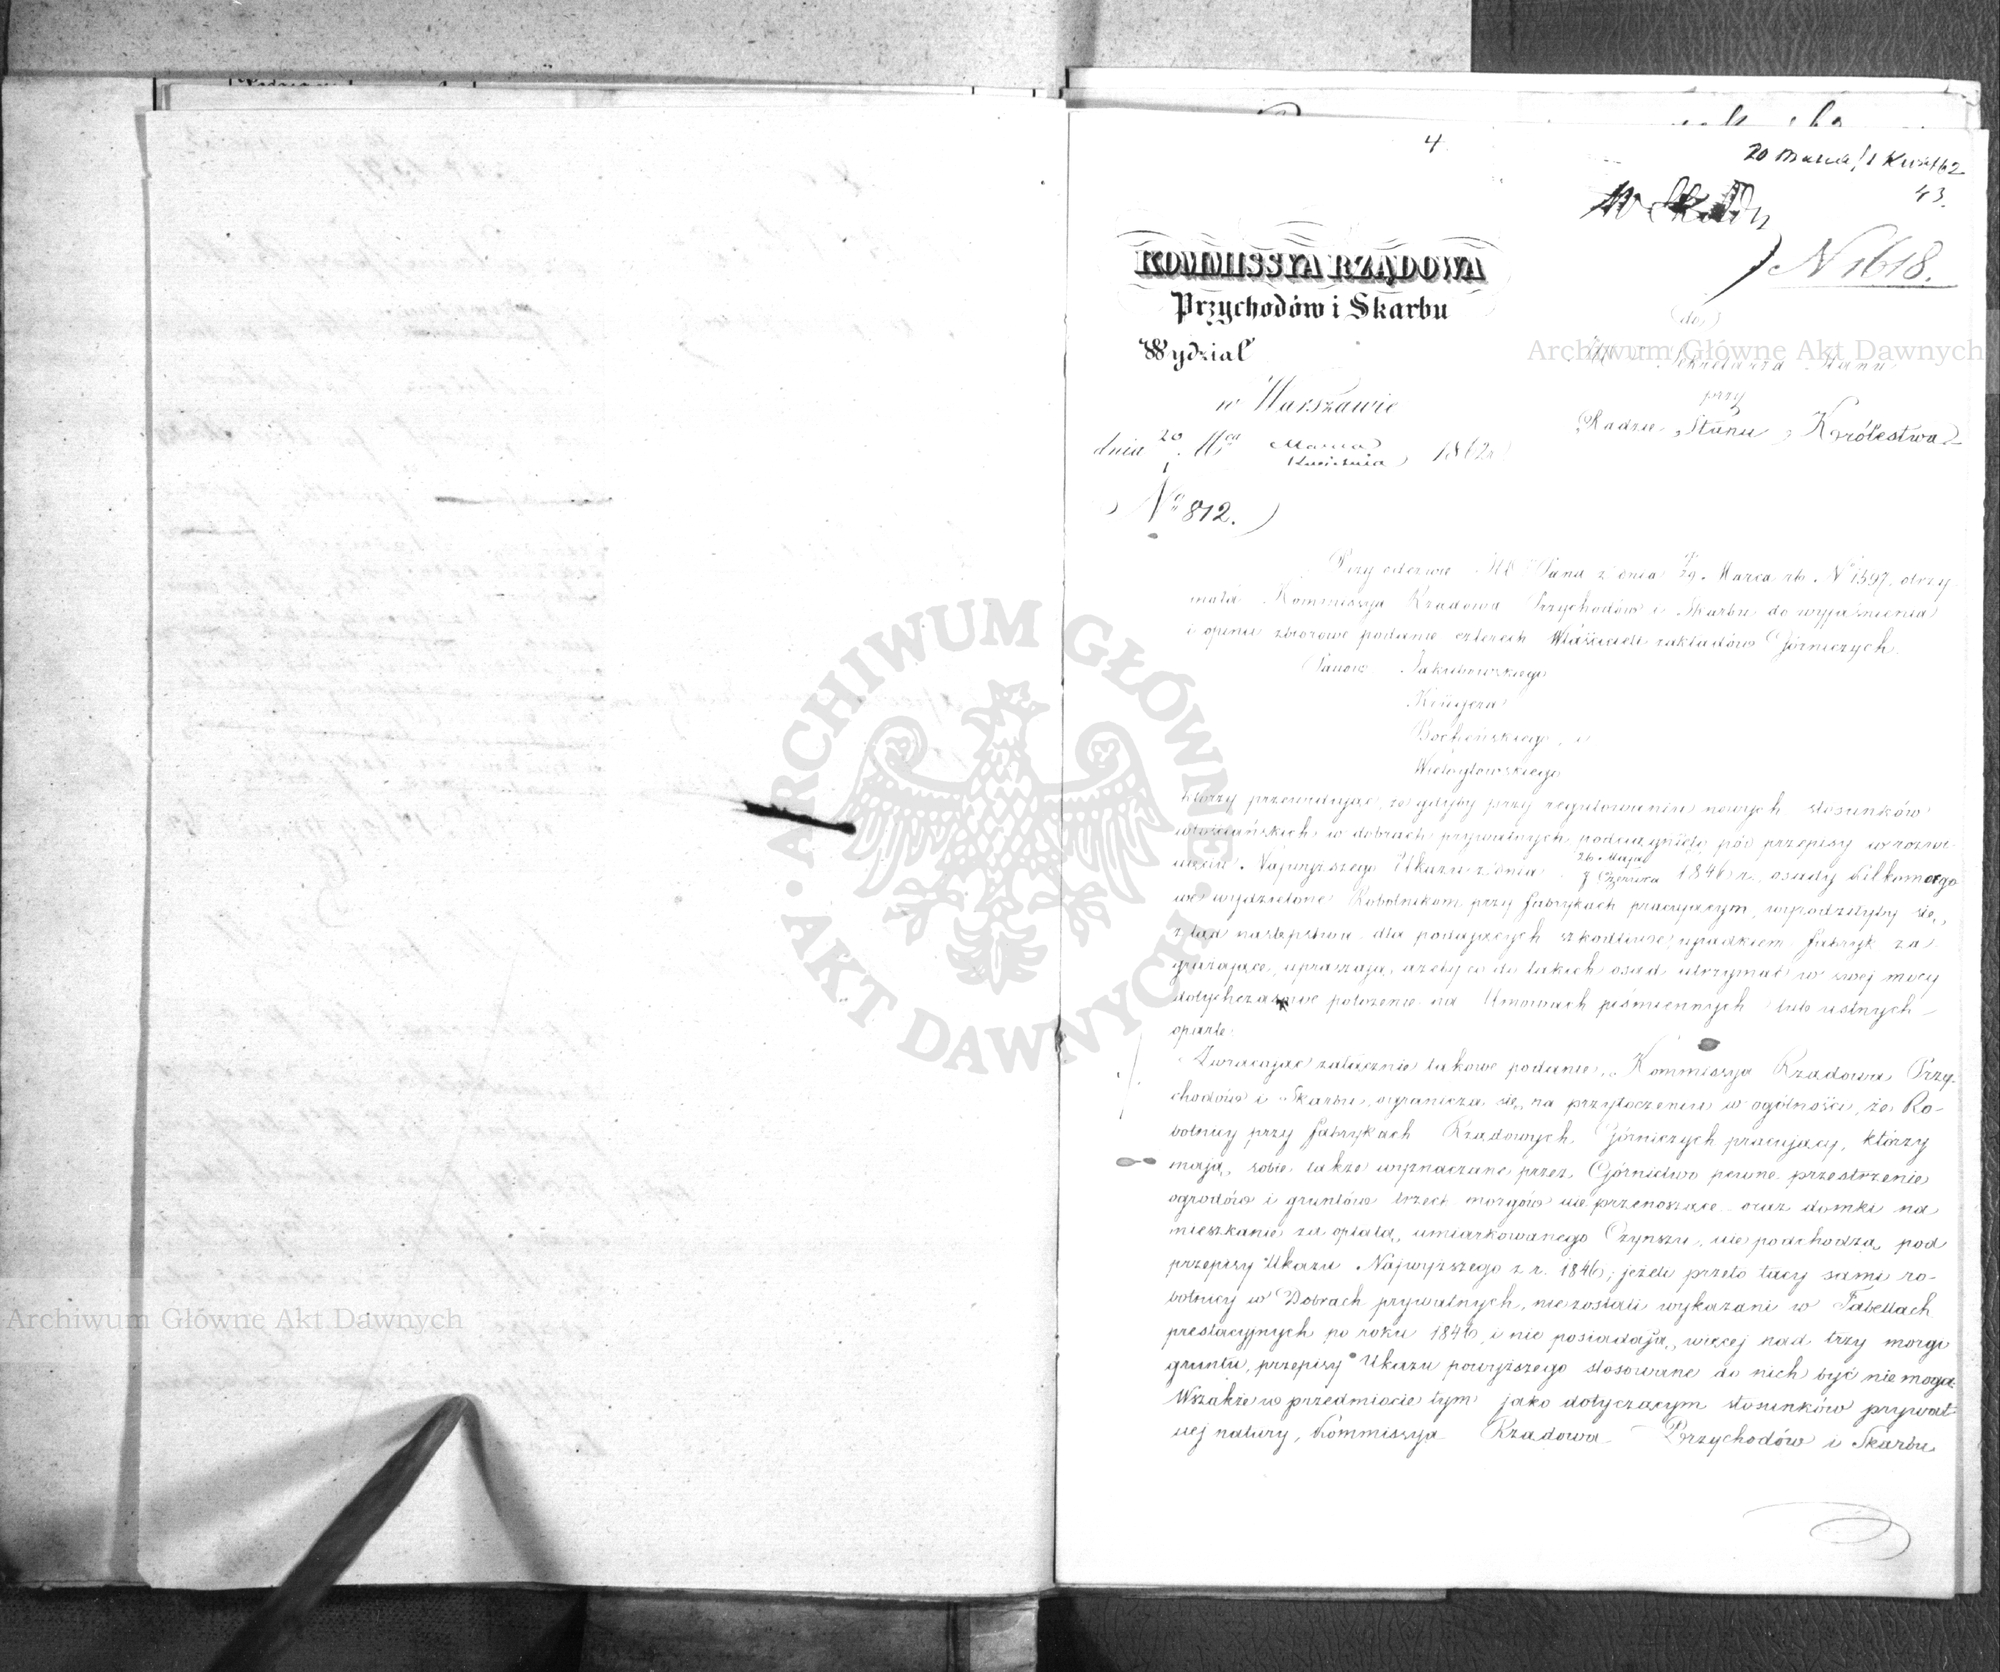 4.
20 Marca / 1 Kwiet 62
43.
N 1618.
KOMMISSYA RZĄDOWA
Przychodów i Skarbu
Wydział
w Warszawie
dnia 20 Marca
1 Kwietnia 1862 r.
No 812.
do
JW Sekretarza Stanu
przy
Radzie Stanu Królestwa
Przy odezwie JW Pana z dnia 7/19 Marca rb. N 1597, otrzy-
mała Kommissya Rządowa Przychodów i Skarbu do wyjaśnienia
i opinii zbiorowe podanie czterech Właścicieli zakładów Górniczych.
Panów Jakubowskiego
Krügera
Bocheńskiego, i
Wielogłowskiego
którzy przewidując, że gdyby przy regulowaniu nowych stosunków
włościańskich w dobrach prywatnych, podciągnięte pod przepisy w rozwi-
nięciu Najwyższego Ukazu z dnia 26 Maja
7 Czerwca 1846 r. osady kilkomorgo
we wydzielone Robotnikom przy fabrykach pracującym, wyrodziłyby się,
ztąd następstwa dla podających szkodliwe, upadkiem fabryk za-
grażające, upraszają, ażeby co do takich osad utrzymać w swej mocy
dotychczasowe położenie na Umowach piśmiennych lub ustnych
oparte.
Zwracając załącznie takowe podanie, Kommissya Rządowa Przy-
chodów i Skarbu, ogranicza się, na przytoczeniu w ogólności, że Ro-
botnicy przy fabrykach Rządowych Górniczych pracujący, którzy
mają, sobie także wyznaczane przez Górnictwo pewne przestrzenie
ogrodów i gruntów trzech morgów nie przenoszące oraz domki na
mieszkanie za opłatą, umiarkowanego Czynszu, nie podchodzą, pod
przepisy Ukazu Najwyższego z r. 1846; jeżeli przeto tacy sami ro-
botnicy w Dobrach prywatnych, nie zostali wykazani w Tabellach
prestacyjnych po roku 1846, i nie posiadają, więcej nad trzy morgi
gruntu, przepisy Ukazu powyższego stosowane do nich być nie mogą.
Wszakże w przedmiocie tym jako dotyczącym stosunków prywat
nej natury, Kommissya Rządowa Przychodów i Skarbu
Archiwum Główne Akt Dawnych
Archiwum Główne Akt Dawnych
ARCHIWUM GŁÓWNE AKT DAWNYCH